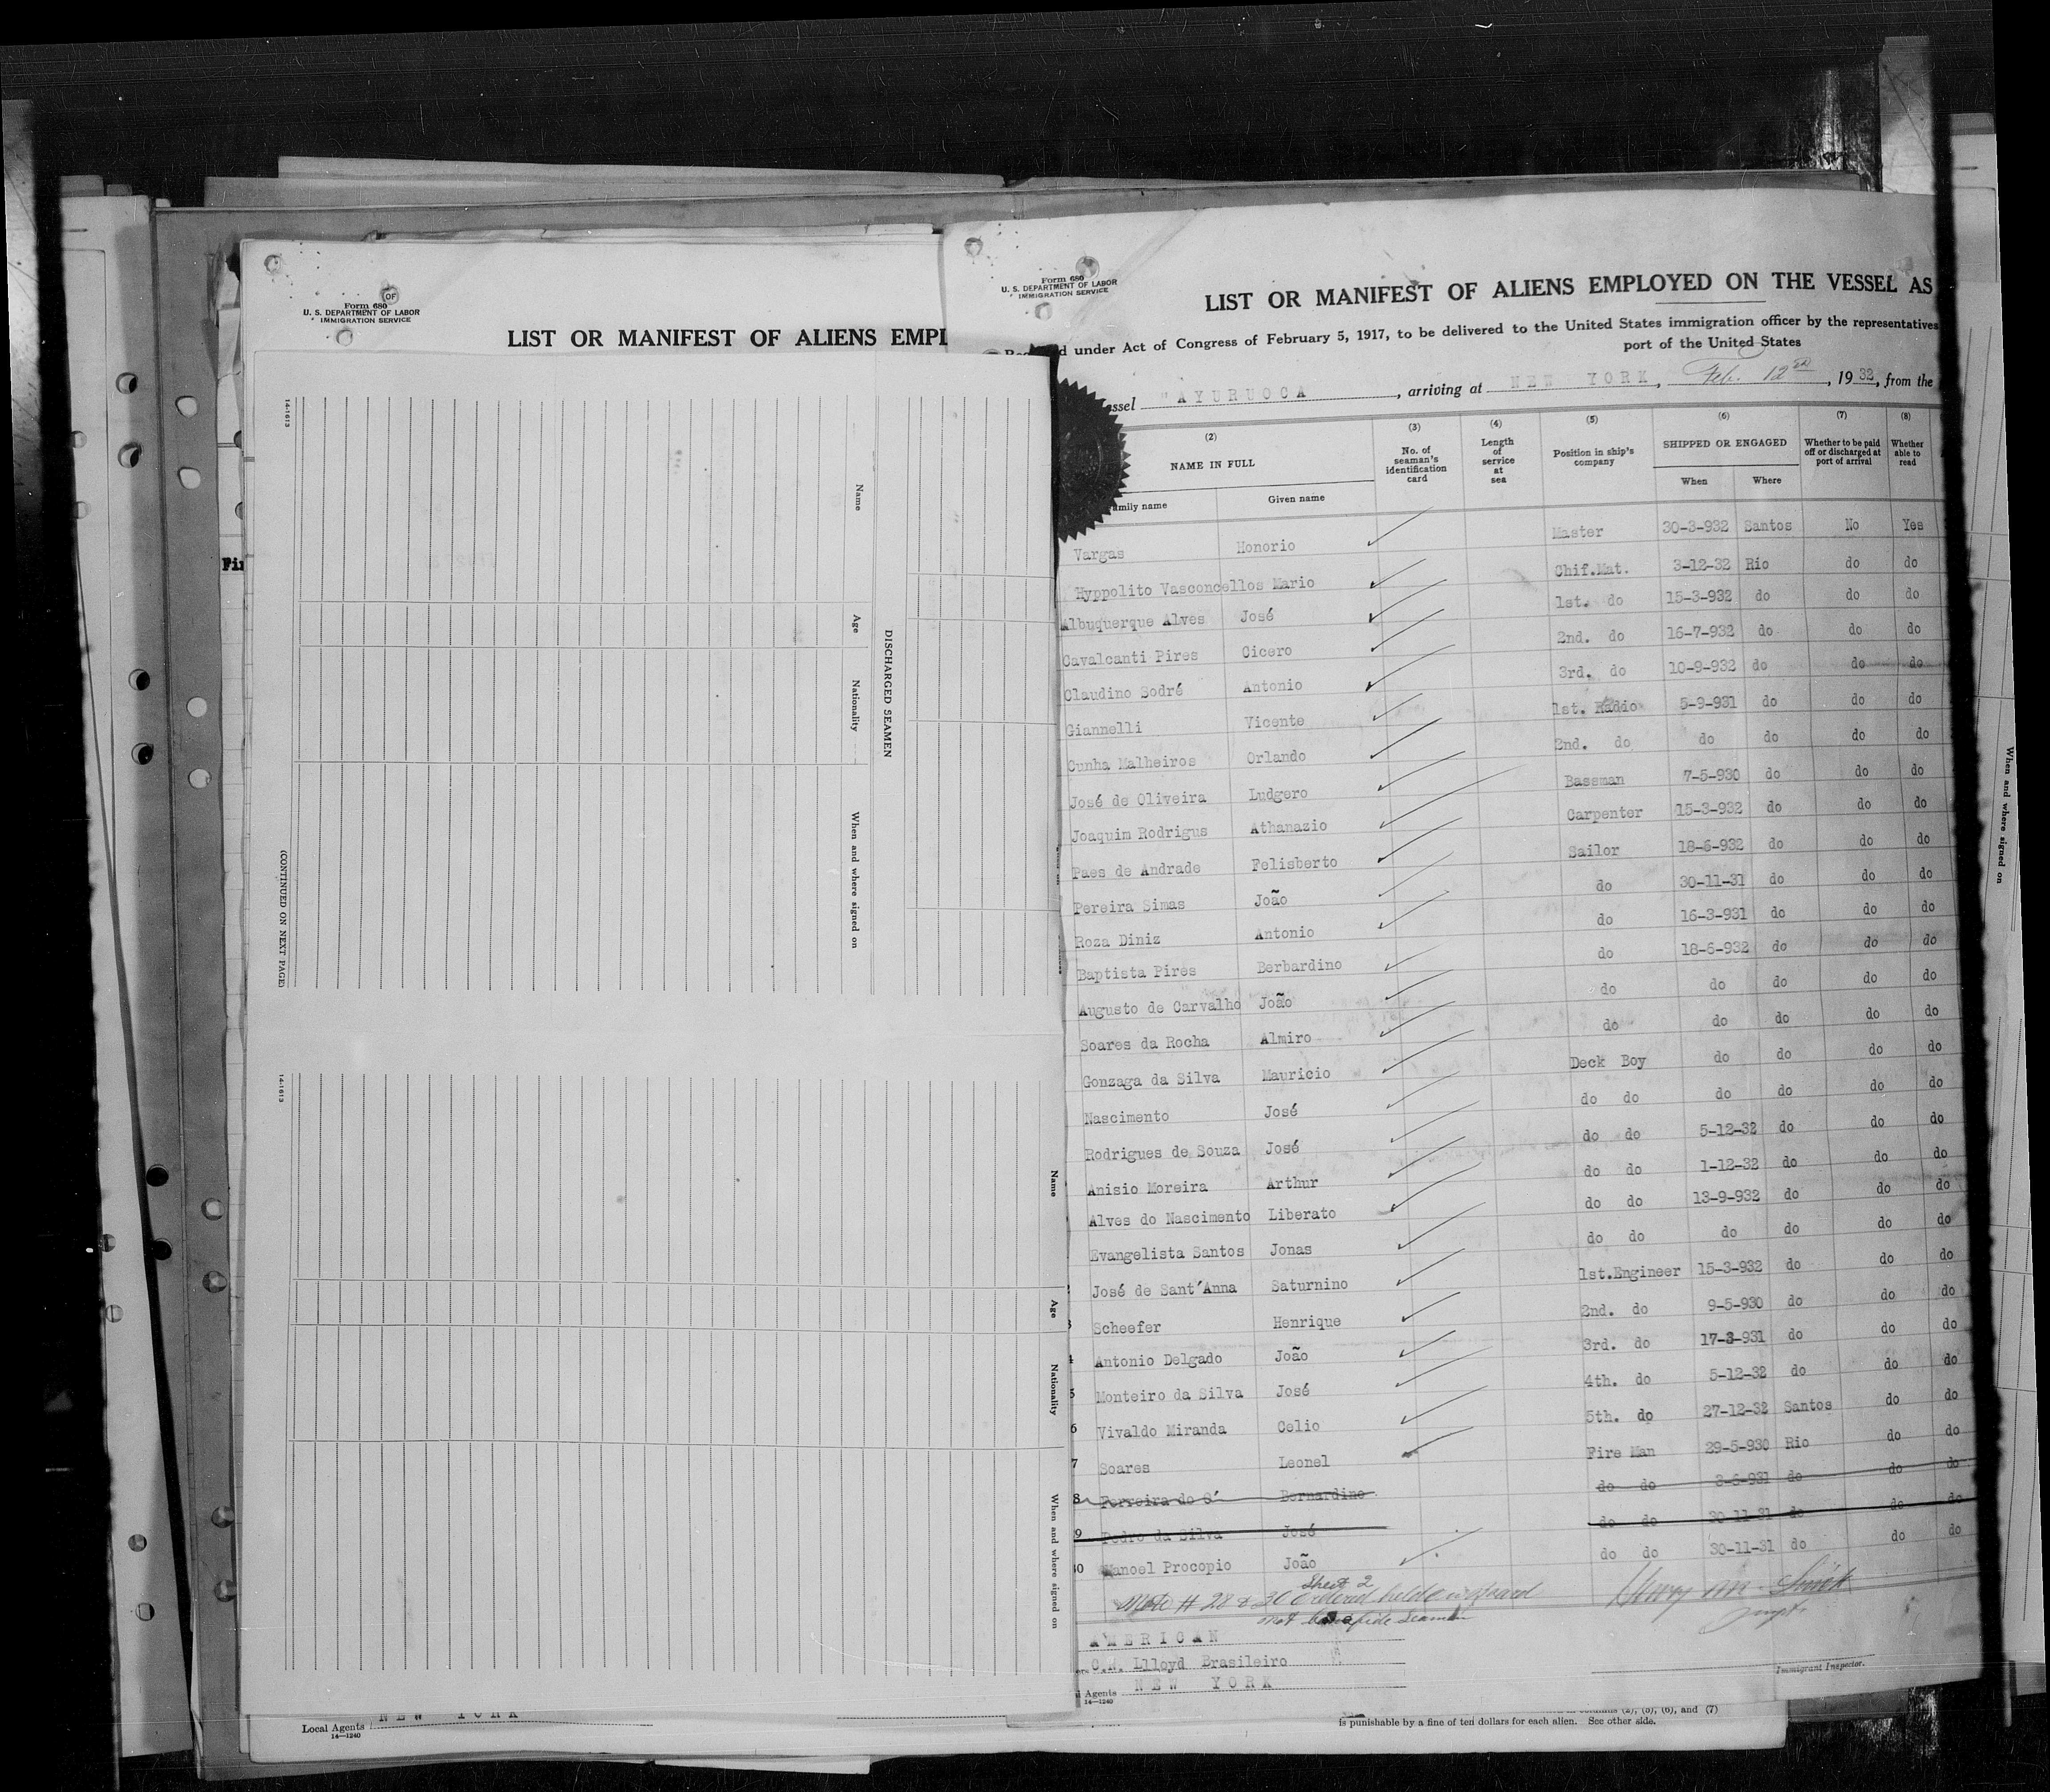 Form 680
U. S. DEPARTMENT OF LABOR
IMMIGRATION SERVICE
LIST OR MANIFEST OF ALIENS EMPL
14-1613
Name
Age
Nationality
When and where signed on
DISCHARGED SEAMEN
(CONTINUED ON NEXT PAGE)
14-1613
Name
Age
Nationality
When and where signed on
Local Agents NEW YORK
14—1240
Form 680
U. S. DEPARTMENT OF LABOR
IMMIGRATION SERVICE
LIST OR MANIFEST OF ALIENS EMPLOYED ON THE VESSEL AS
under Act of Congress of February 5, 1917, to be delivered to the United States immigration officer by the representatives
port of the United States
ssel "AYURUOCA, arriving at NEW YORK, Feb. 12, 1932, from the
(2) (3) (4) (5) (6) (7) (8)
NAME IN FULL
No. of seaman's identification card
Length of service at sea
Position in ship's company
SHIPPED OR ENGAGED
Whether to be paid off or discharged at port of arrival
Whether able to read
mily name Given name When Where
Vargas Honorio Master 30-3-932 Santos No Yes
Hyppolito Vasconcellos Mario Chif.Mat. 3-12-32 Rio do do
Albuquerque Alves José 1st. do 15-3-932 do do do
Cavalcanti Pires Cicero 2nd. do 16-7-932 do do do
Claudino Sodré Antonio 3rd. do 10-9-932 do do do
Giannelli Vicente 1st. Radio 5-9-931 do do do
Cunha Malheiros Orlando 2nd. do do do do do
José de Oliveira Ludgero Bassman 7-5-930 do do do
Joaquim Rodrigus Athanazio Carpenter 15-3-932 do do do
Paes de Andrade Felisberto Sailor 18-6-932 do do do
Pereira Simas João do 30-11-31 do do do
Roza Diniz Antonio do 16-3-931 do do do
Baptista Pires Berbardino do 18-6-932 do do do
Augusto de Carvalho João do do do do do
Soares da Rocha Almiro do do do do do
Gonzaga da Silva Mauricio Deck Boy do do do do
Nascimento José do do do do do do
Rodrigues de Souza José do do 5-12-32 do do do
Anisio Moreira Arthur do do 1-12-32 do do do
Alves do Nascimento Liberato do do 13-9-932 do do do
Evangelista Santos Jonas do do do do do do
José de Sant'Anna Saturnino 1st.Engineer 15-3-932 do do do
3 Scheefer Henrique 2nd. do 9-5-930 do do do
4 Antonio Delgado João 3rd. do 17-3-931 do do do
5 Monteiro da Silva José 4th. do 5-12-32 do do do
6 Vivaldo Miranda Celio 5th. do 27-12-32 Santos do do
7 Soares Leonel Fire Man 29-5-930 Rio do do
8 Ferreira do Bernardino do do 3-6-931 do do do
9 Pedro da Silva José do do 30-11-31 do do do
30 Manoel Procopio João do do 30-11-31 do do do
Sheet 2
Note # 28 & 30 ordered held on board
not bonafide Seamen
AMERICAN
C.N. Llloyd Brasileiro
Agents NEW YORK
14—1240
Immigrant Inspector.
columns (2), (5), (6), and (7)
is punishable by a fine of ten dollars for each alien. See other side.
When and where signed on